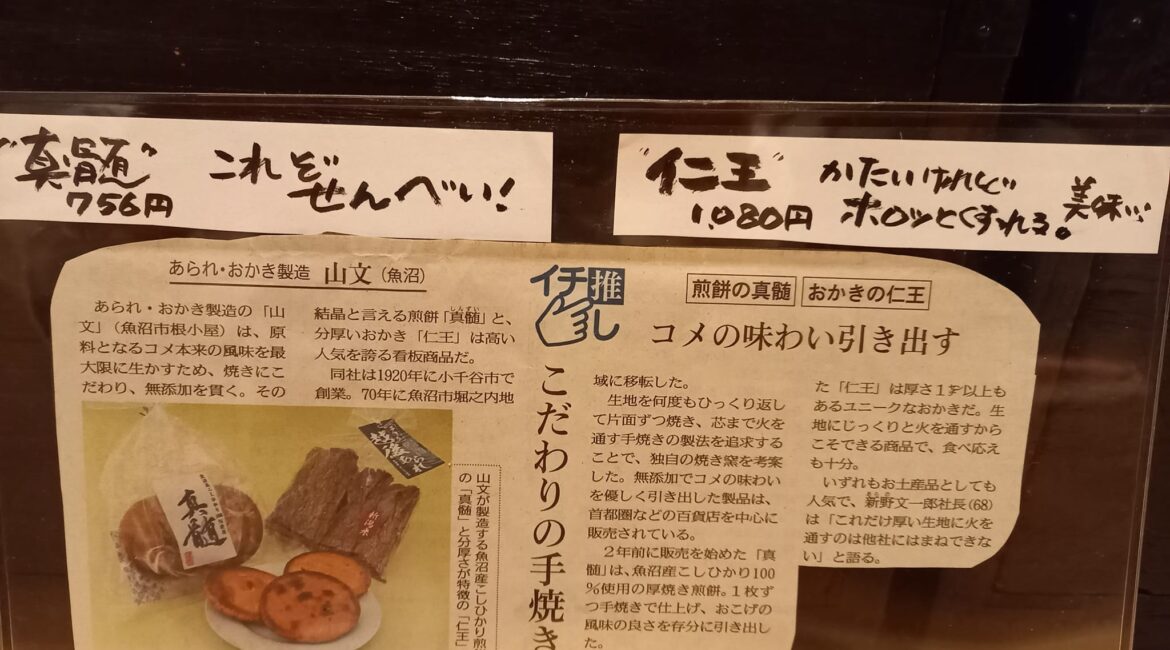 "真髄"
756円
これぞ
せんべい!
"仁王"
1,080円
かたいけれど
ホロッとくずれる。
美味い
あられ・おかき製造 山文(魚沼)
イチ推し
煎餅の真髄 おかきの仁王
コメの味わい引き出す
こだわりの手焼き
あられ・おかき製造の「山
文」(魚沼市根小屋)は、原
料となるコメ本来の風味を最
大限に生かすため、焼きにこ
だわり、無添加を貫く。その
結晶と言える煎餅「真髄」と、
しんずい
分厚いおかき「仁王」は高い
人気を誇る看板商品だ。
同社は1920年に小千谷市で
創業。70年に魚沼市堀之内地
域に移転した。
生地を何度もひっくり返し
て片面ずつ焼き、芯まで火を
通す手焼きの製法を追求する
ことで、独自の焼き窯を考案
した。無添加でコメの味わい
を優しく引き出した製品は、
首都圏などの百貨店を中心に
販売されている。
2年前に販売を始めた「真
髄」は、魚沼産こしひかり100
%使用の厚焼き煎餅。1枚ず
つ手焼きで仕上げ、おこげの
風味の良さを存分に引き出し
た。
た「仁王」は厚さ1㌢以上も
あるユニークなおかきだ。生
地にじっくりと火を通すから
こそできる商品で、食べ応え
も十分。
いずれもお土産品としても
人気で、新野文一郎社長(68)
は「これだけ厚い生地に火を
通すのは他社にはまねできな
い」と語る。
山文が製造する魚沼産こしひかり煎
の「真髄」と分厚さが特徴の「仁王」
真髄
新潟県